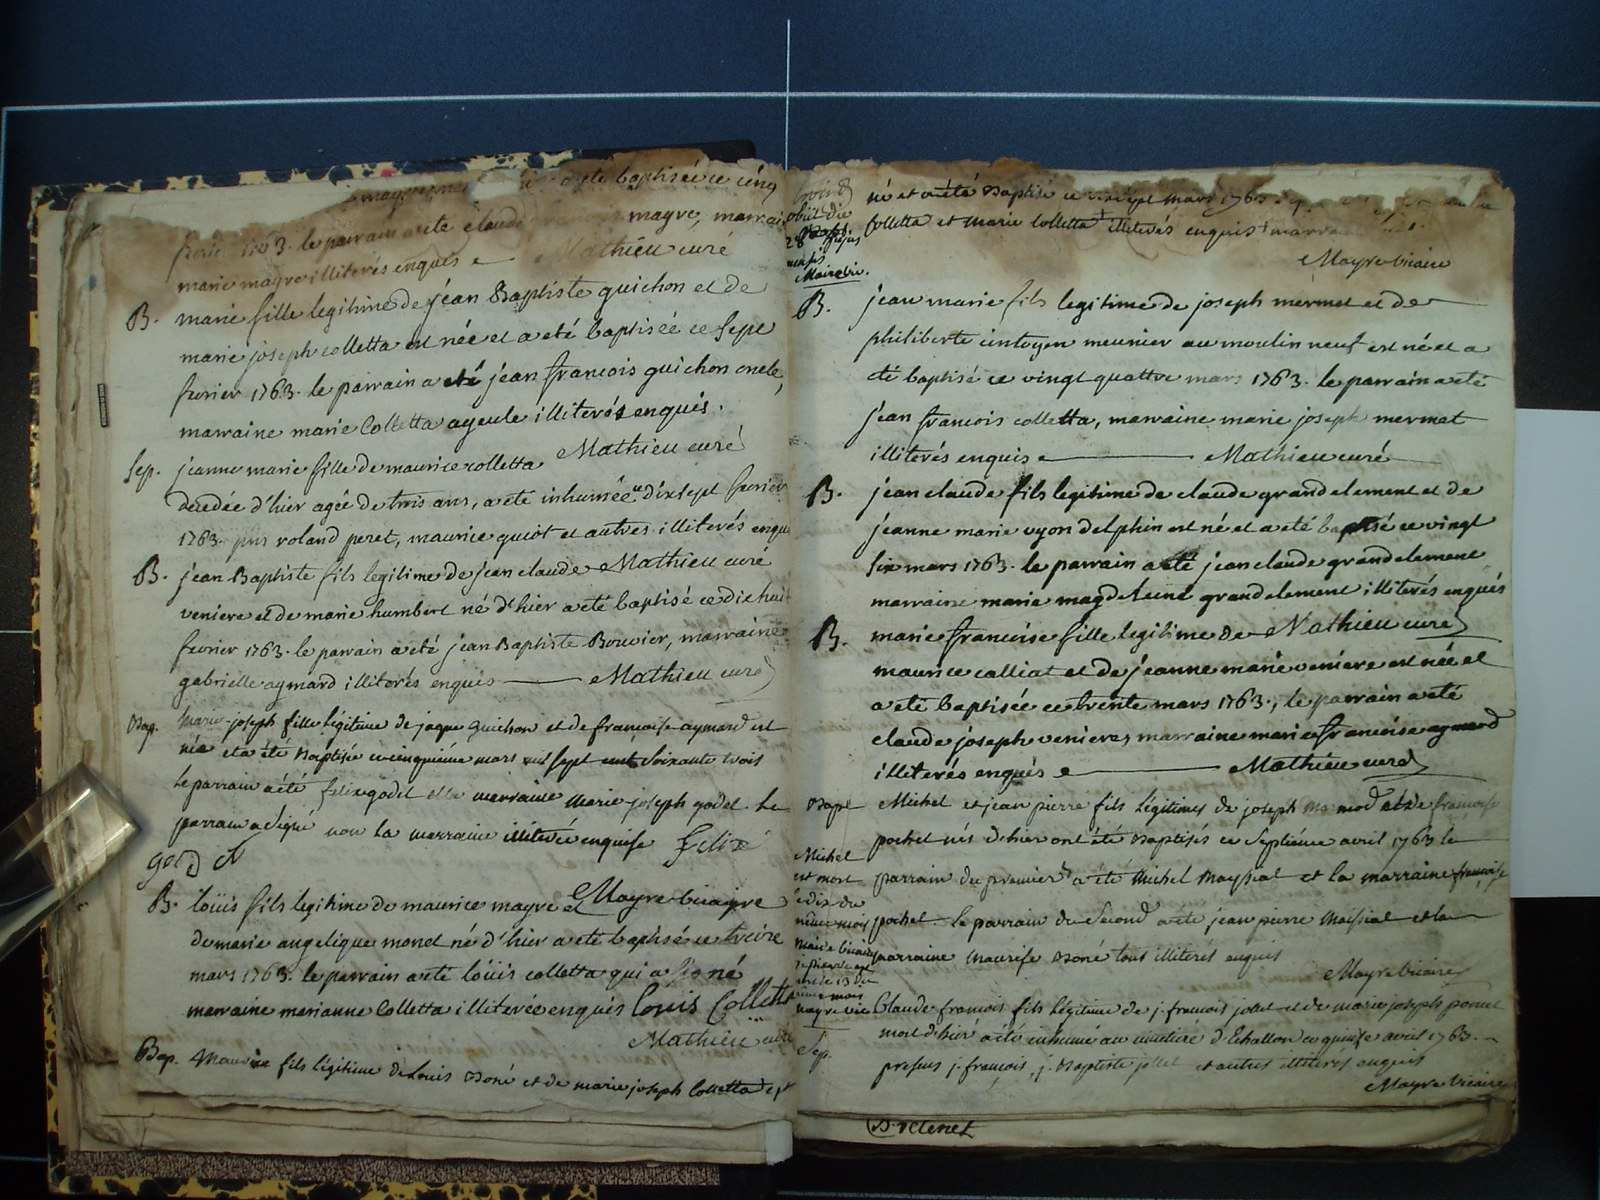 a été baptisée ce cinq
1763. le parrain a été claude mayre, marrai
marie mayre illiterés enquis Mathieu curé
B. marie fille legitime de jéan Baptiste guichon et de
marie joseph colletta est née et a eté baptisée ce sept
fevrier 1763. le parrain a eté jean francois guichon oncle,
marraine marie Colletta ayeule illiterés enquis.
Mathieu curé
Sep. jeanne marie fille de maurice colletta
decedée d'hier agée de trois ans, a eté inhumée le dix sept fevrier
1763. pns roland peret, maurice guiot et autres illiterés enqui
B. jean Baptiste fils legitime de jean claude Mathieu curé
veniere et de marie humbert né d'hier a eté baptisé ce dix huit
fevrier 1763. le parrain a eté jean Baptiste Bouvier, marraine
gabrielle aymard illiterés enquis Mathieu curé
Bap. Marie joseph fille légitime de jaque Guichon et de francoise aymard est
née et a été Baptisée ce cinquiéme mars mil sept cent soixante trois
le parrain a été felix godet et la marraine Marie joseph godet. Le
parrain a signé non la marraine illitérée enquise felix
god d
B. loüis fils legitime de maurice mayre et Mayre vicaire
de marie angelique monet né d'hier a eté baptisé ce treize
mars 1763. le parrain a eté loüis colletta qui a signé
marraine marianne Colletta illiterée enquis Louis Collett
Mathieu curé
Bap. Maurice fils légitime de Louis Boné et de marie joseph Colletta est
né et a été Baptisé ce mars 1763
Colletta et Marie Colletta illiterés enquis
Mayre vicaire
obiit die
28
Maire vic.
B. jean marie fils legitime de joseph mermet et de
philiberte meunier au moulin neuf est né et a
eté baptisé ce vingt quattre mars 1763. le parrain a eté
jéan francois colletta, marraine marie joseph mermet
illiterés enquis Mathieu curé
B. jean claude fils legitime de claude grandclement et de
jeanne marie delphin est né et a eté baptisé ce vingt
six mars 1763. le parrain a eté jean claude grandclement
marraine marie magdeleine grandclement illiterés enqués
B. marie francoise fille legitime de Mathieu curé
maurice calliat et de jeanne marie veniere est née et
a eté baptisée ce trente mars 1763., le parrain a eté
claude joseph veniere, marraine marie francoise aymard
illiterés enqués Mathieu curé
Bapt Michel et jean pierre fils légitimes de joseph et de francoise
pochet nés d'hier ont été Baptisés ce septiéme avril 1763 le
parrain du premier a été Michel Maysiat et la marraine françoise
pochet. le parrain du second a été jean pierre Maissiat et la
marraine Maurise Boné tous illiterés enquis
Mayre vicaire
Michel
est mort
le dix du
même mois
Maire vicaire
j. pierre est
mort le 13 du
même mois
mayre vic
Sep. Claude francois fils légitime de j. francois jollet et de marie joseph ponut
mort d'hier a été inhumé au cimetiere d'Echallon ce quinze avril 1763.
presens j. françois, j. Baptiste jollet et autres illiteres enquis
Mayre vicaire